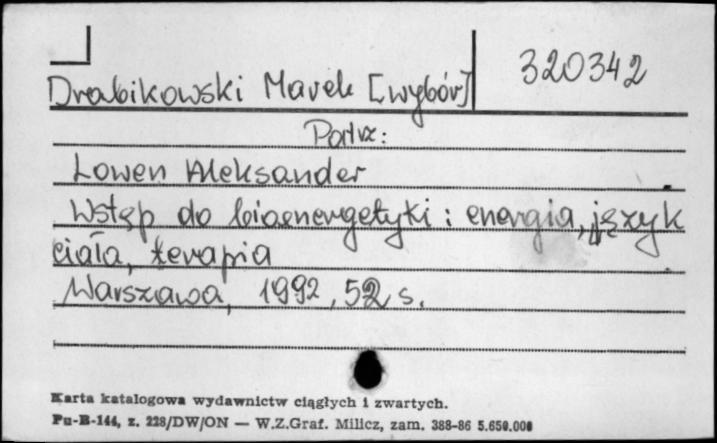 320342
Drabikowski Marek [wybór]
Patrz:
Lowen Aleksander
Wstęp do bioenergetyki : energia, język
ciała, terapia
Warszawa, 1992, 52 s.
Karta katalogowa wydawnictw ciągłych i zwartych.
Pu-B-144, z. 228/DW/ON — W.Z.Graf. Milicz, zam. 388-86 5.650.000